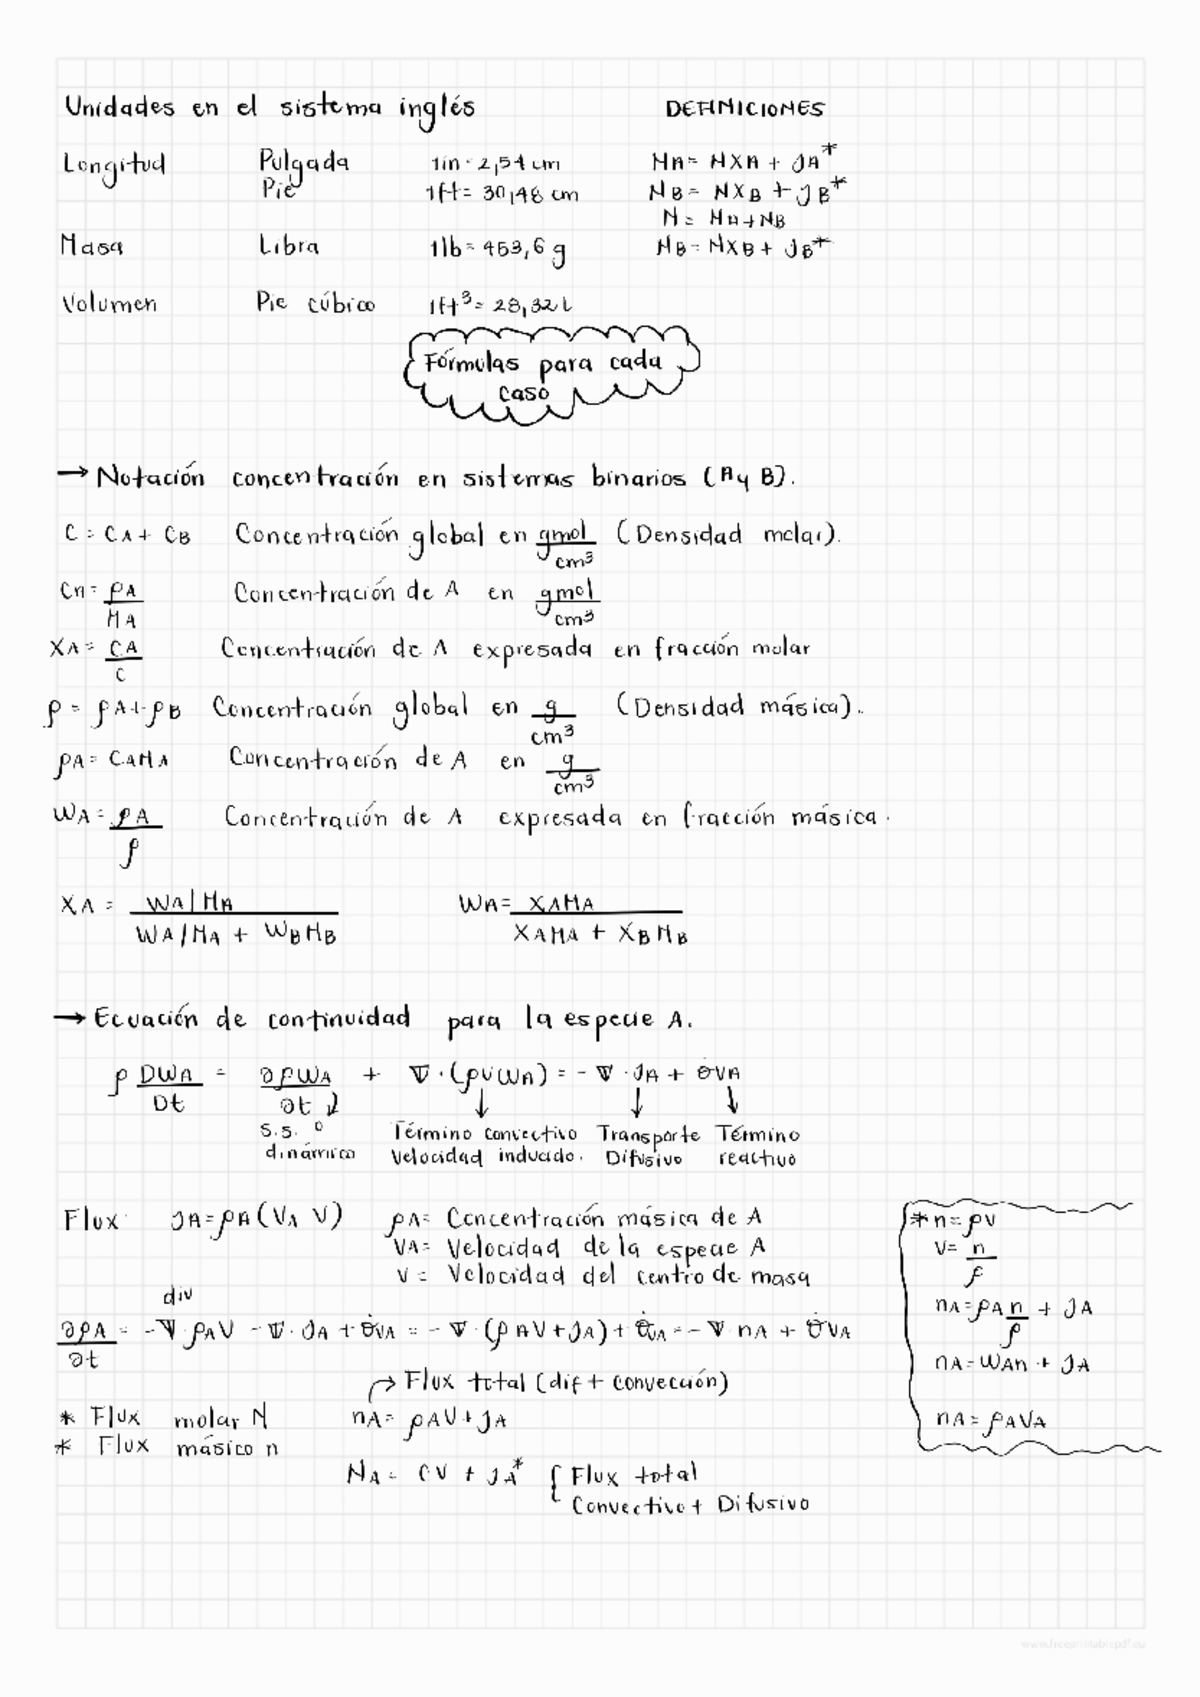 Unidades en el sistema inglés DEFINICIONES
Longitud Pulgada 1in = 2,54 cm NA = NXA + JA*
Pie 1ft = 30,48 cm NB = NXB + JB*
N = NA+NB
Masa Libra 1lb = 453,6 g NB = NXB + JB*
Volumen Pie cúbico 1ft³ = 28,32 L
Fórmulas para cada
caso
→ Notación concentración en sistemas binarios (A y B).
C = CA + CB Concentración global en gmol/cm³ (Densidad molar).
CA = ρA/MA Concentración de A en gmol/cm³
XA = CA/C Concentración de A expresada en fracción molar
ρ = ρA + ρB Concentración global en g/cm³ (Densidad másica).
ρA = CAMA Concentración de A en g/cm³
WA = ρA/ρ Concentración de A expresada en fracción másica.
XA = WA/MA / WA/MA + WBMB WA = XAMA / XAMA + XBMB
→ Ecuación de continuidad para la especie A.
ρ DWA/Dt = ∂ρWA/∂t + ∇·(ρVWA) = -∇·JA + σ̇VA
S.S. o Término convectivo Transporte Término
dinámico Velocidad inducida. Difusivo reactivo
Flux JA = ρA(VA V) ρA = Concentración másica de A
VA = Velocidad de la especie A
V = Velocidad del centro de masa
div
∂ρA/∂t = -∇·ρAV - ∇·JA + σ̇VA = -∇·(ρAV + JA) + σ̇VA = -∇ nA + σ̇VA
→ Flux total (dif + convección)
* Flux molar N nA = ρAV + JA
* Flux másico n
NA = CV + JA* { Flux total
Convectivo + Difusivo
* n = ρV
V = n/ρ
nA = ρA n/ρ + JA
nA = WAn + JA
nA = ρAVA